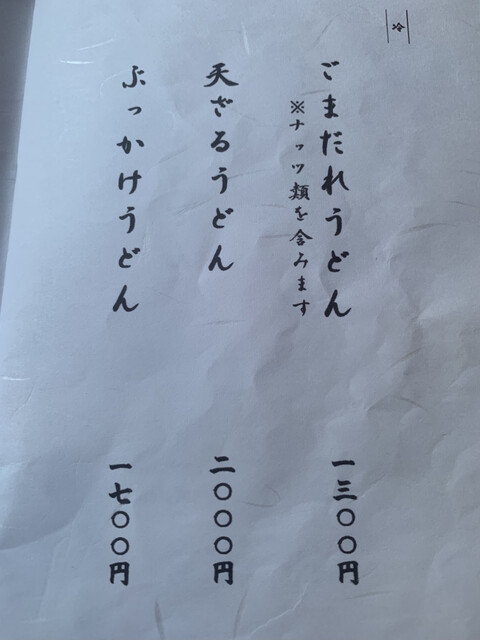 冷
ごまだれうどん
一三〇〇円
※ナッツ類を含みます
天ざるうどん
二〇〇〇円
ぶっかけうどん
一七〇〇円